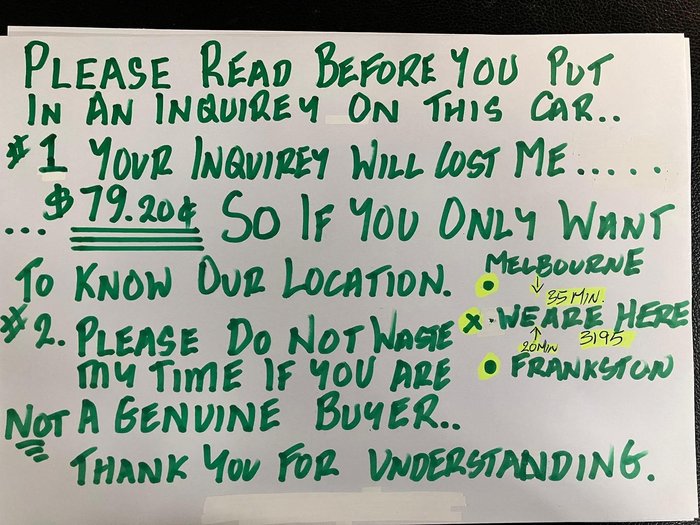 PLEASE READ BEFORE YOU PUT
IN AN INQUIREY ON THIS CAR..
#1 YOUR INQUIREY WILL COST ME.....
...$79.20¢ SO IF YOU ONLY WANT
TO KNOW OUR LOCATION.
#2. PLEASE DO NOT WASTE
MY TIME IF YOU ARE
NOT A GENUINE BUYER..
THANK YOU FOR UNDERSTANDING.
MELBOURNE
↓ 35 MIN.
X. WE ARE HERE
↑ 20 MIN 3195
FRANKSTON